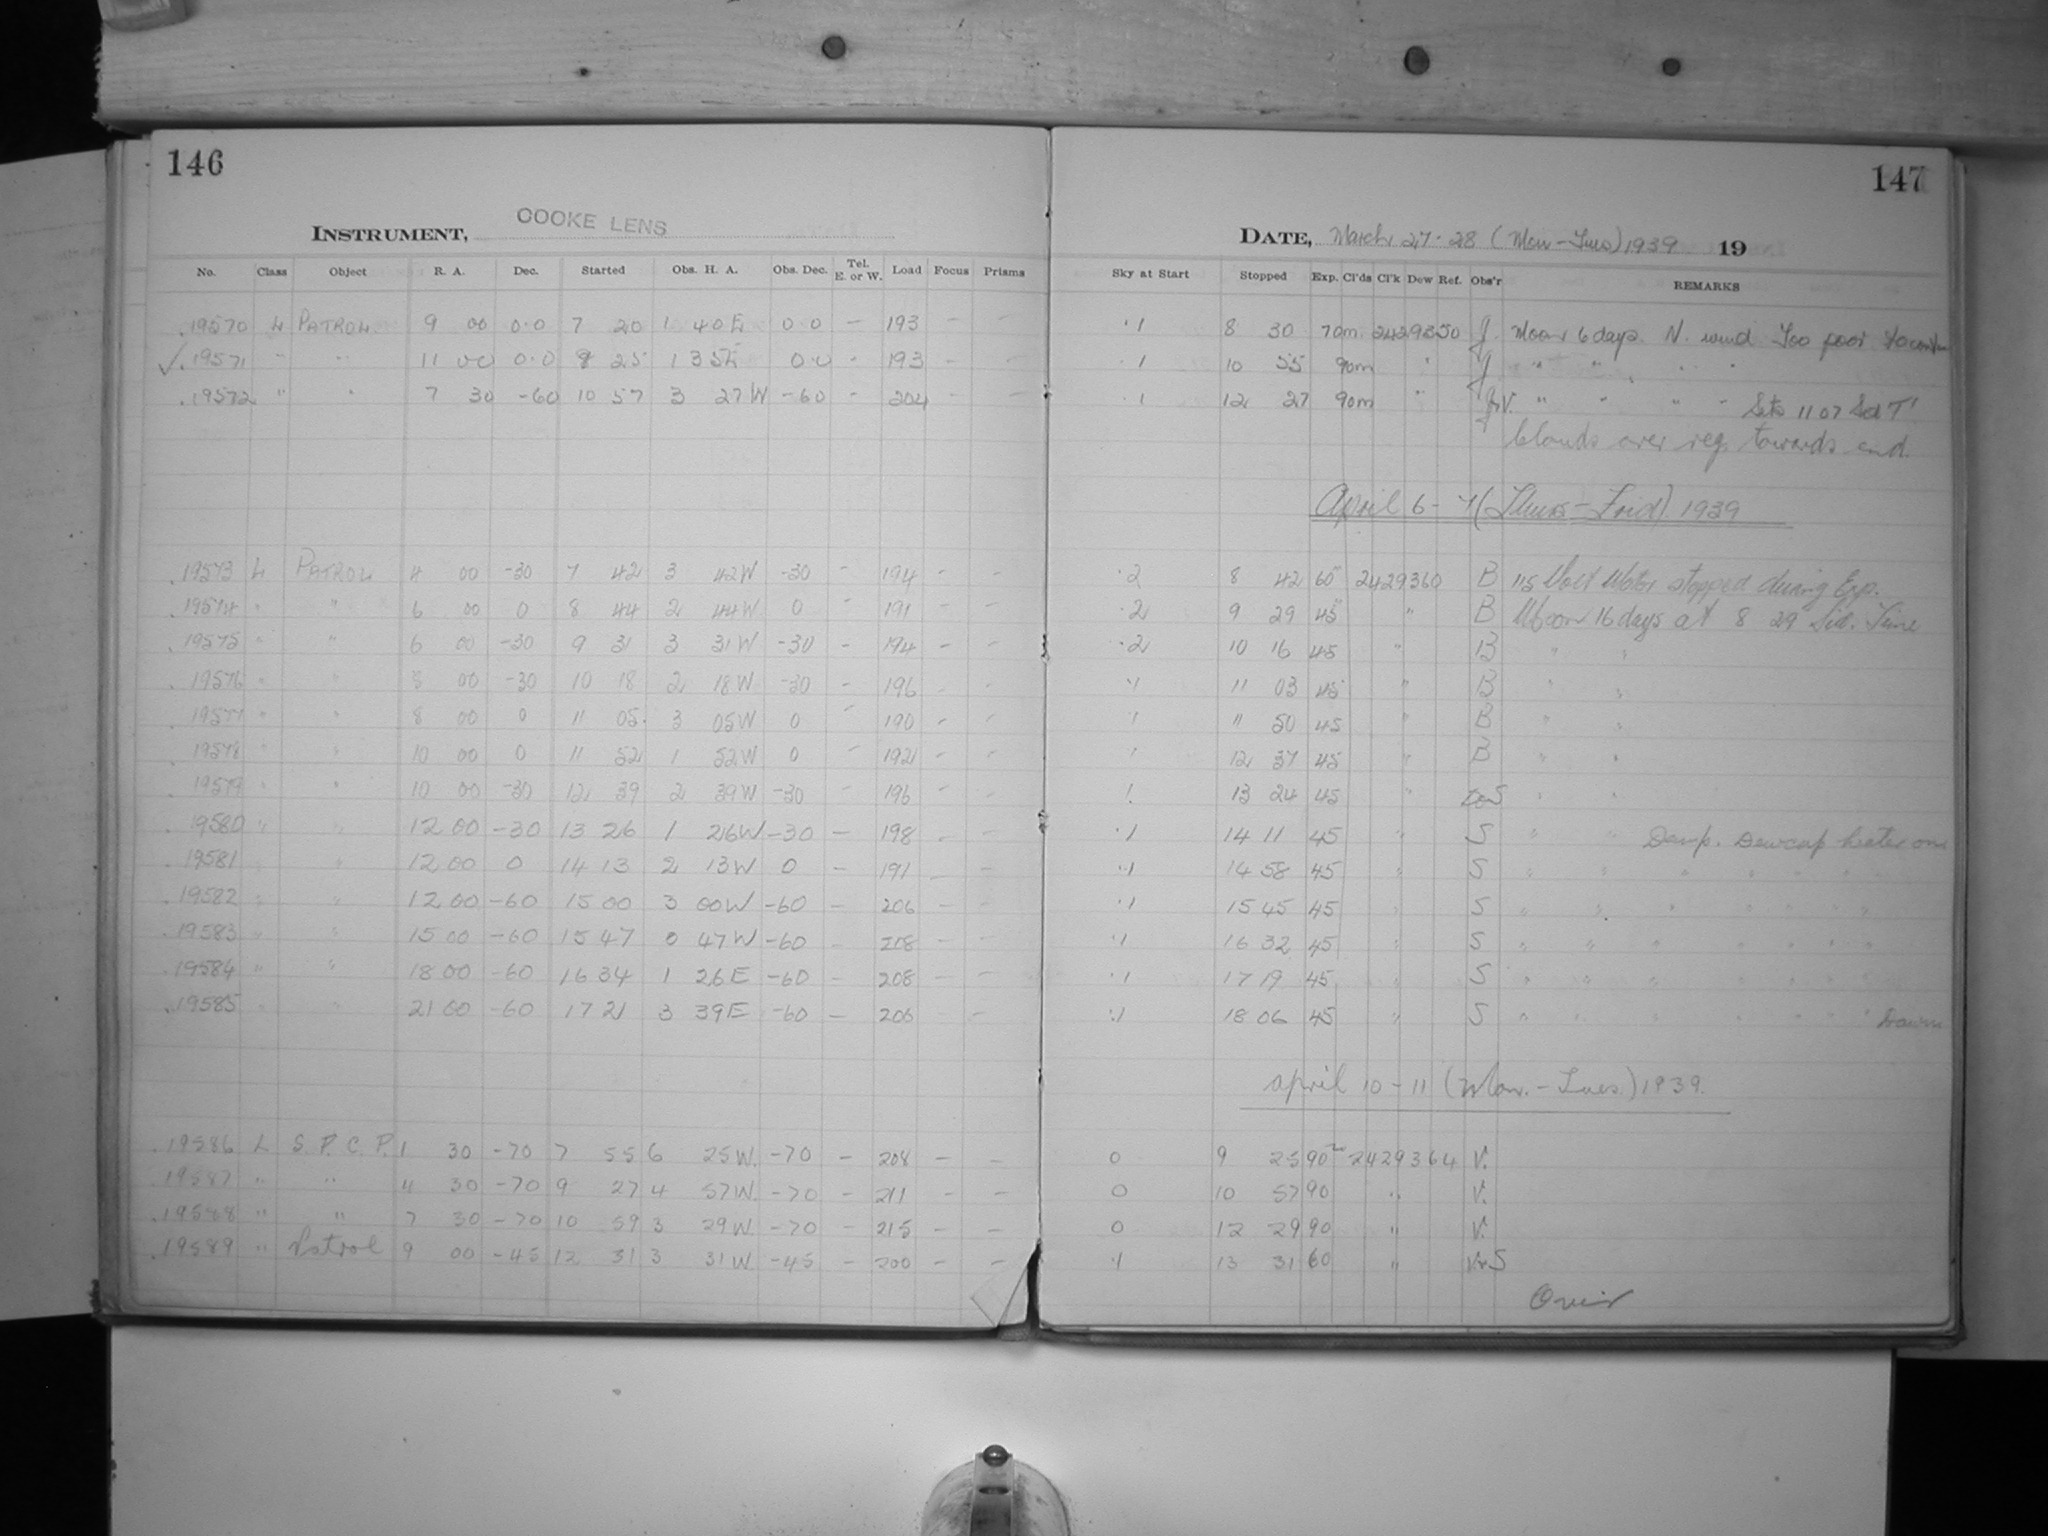 146
147
INSTRUMENT, COOKE LENS
DATE, March 27-28 (Mon-Tues) 1939 19
No. Class Object R. A. Dec. Started Obs. H. A. Obs. Dec. Tel. E. or W. Load Focus Prisms Sky at Start Stopped Exp. Cl'ds Cl'k Dew Ref. Obs'r REMARKS
.19570 L PATROL 9 00 0.0 7 20 1 40 E 0.0 - 193 - - .1 8 30 70m 2429350 J Moon 6 days. N. wind Too poor to
✓.19571 " " 11 00 0.0 9 25 1 35 E 0.0 - 193 - - .1 10 55 90m " J " " " "
.19572 " " 7 30 -60 10 57 3 27 W -60 - 204 - - .1 12 27 90m " J+V. " " " " Sets 11 07 Sid T.
Clouds over reg. towards end.
April 6-7 (Thurs-Frid) 1939
.19573 L PATROL 4 00 -30 7 42 3 42W -30 - 194 - - .2 8 42 60m 2429360 B 115 Volt Motor stopped during Exp.
.19574 " " 6 00 0 8 44 2 44W 0 - 191 - - .2 9 29 45m " B Moon 16 days at 8 29 Sid. Time
.19575 " " 6 00 -30 9 31 3 31W -30 - 194 - - .2 10 16 45 " B " "
.19576 " " 8 00 -30 10 18 2 18W -30 - 196 - - .1 11 03 45 " B " "
.19577 " " 8 00 0 11 05 3 05W 0 - 190 - - .1 11 50 45 " B " "
.19578 " " 10 00 0 11 52 1 52W 0 - 192 - - .1 12 37 45 " B " "
.19579 " " 10 00 -30 12 39 2 39W -30 - 196 - - .1 13 24 45 " S " "
.19580 " " 12 00 -30 13 26 1 26W -30 - 198 - - .1 14 11 45 " S " " Damp. Dewcap heater on
.19581 " " 12 00 0 14 13 2 13W 0 - 191 - - .1 14 58 45 " S " " " " " "
.19582 " " 12 00 -60 15 00 3 00W -60 - 206 - - .1 15 45 45 " S " " " " " "
.19583 " " 15 00 -60 15 47 0 47W -60 - 208 - - .1 16 32 45 " S " " " " " "
.19584 " " 18 00 -60 16 34 1 26E -60 - 208 - - .1 17 19 45 " S " " " " " "
.19585 " " 21 00 -60 17 21 3 39E -60 - 206 - - .1 18 06 45 " S " " " " " " Dawn
April 10-11 (Mon.-Tues.) 1939.
.19586 L S.P.C.P. 1 30 -70 7 55 6 25W. -70 - 208 - - 0 9 25 90m 2429364 V.
.19587 " " 4 30 -70 9 27 4 57W. -70 - 211 - - 0 10 57 90 " V.
.19588 " " 7 30 -70 10 59 3 29W. -70 - 215 - - 0 12 29 90 " V.
.19589 " Patrol 9 00 -45 12 31 3 31W -45 - 200 - - .1 13 31 60 " V+S
Over